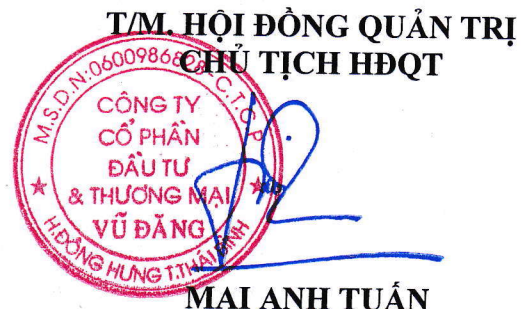 T/M. HỘI ĐỒNG QUẢN TRỊ
CHỦ TỊCH HĐQT
M.S.D.N:0600986828-C.T.C.P
CÔNG TY
CỔ PHẦN
ĐẦU TƯ
& THƯƠNG MẠI
VŨ ĐĂNG
H.ĐÔNG HƯNG T.THÁI BÌNH
MAI ANH TUẤN